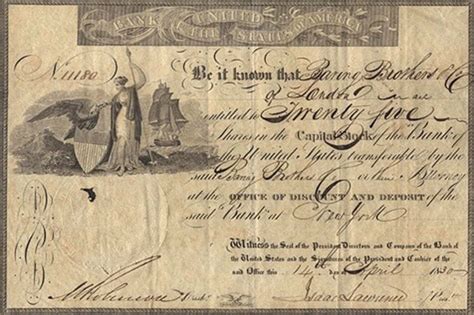 BANK OF THE UNITED STATES OF AMERICA
No 1180
Be it known that Baring Brothers & Co
of London are
entitled to Twenty five
Shares in the Capital Stock of the Bank of
the United States transferable by the
said Baring Brothers & Co or their Attorney
at the OFFICE OF DISCOUNT AND DEPOSIT of the
said Bank at New York
Witness the Seal of the President Directors and Company of the Bank of
the United States and the Signatures of the President and Cashier of the
said Office this 14th day of April 1830
Isaac Lawrence Pres